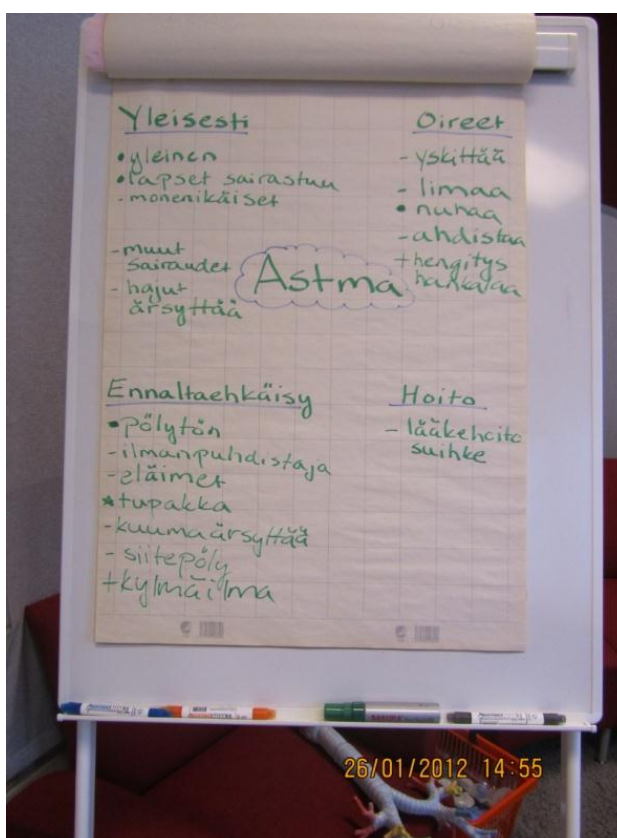 Yleisesti
• yleinen
• lapset sairastuu
- monenikäiset
- muut
sairaudet
- hajut
ärsyttää
Astma
Oireet
- yskittää
- limaa
• nuhaa
- ahdistaa
+ hengitys
hankalaa
Ennaltaehkäisy
• pölytön
- ilmanpuhdistaja
- eläimet
* tupakka
- kuuma ärsyttää
- siitepöly
+ kylmä ilma
Hoito
- lääkehoito
suihke
26/01/2012 14:55